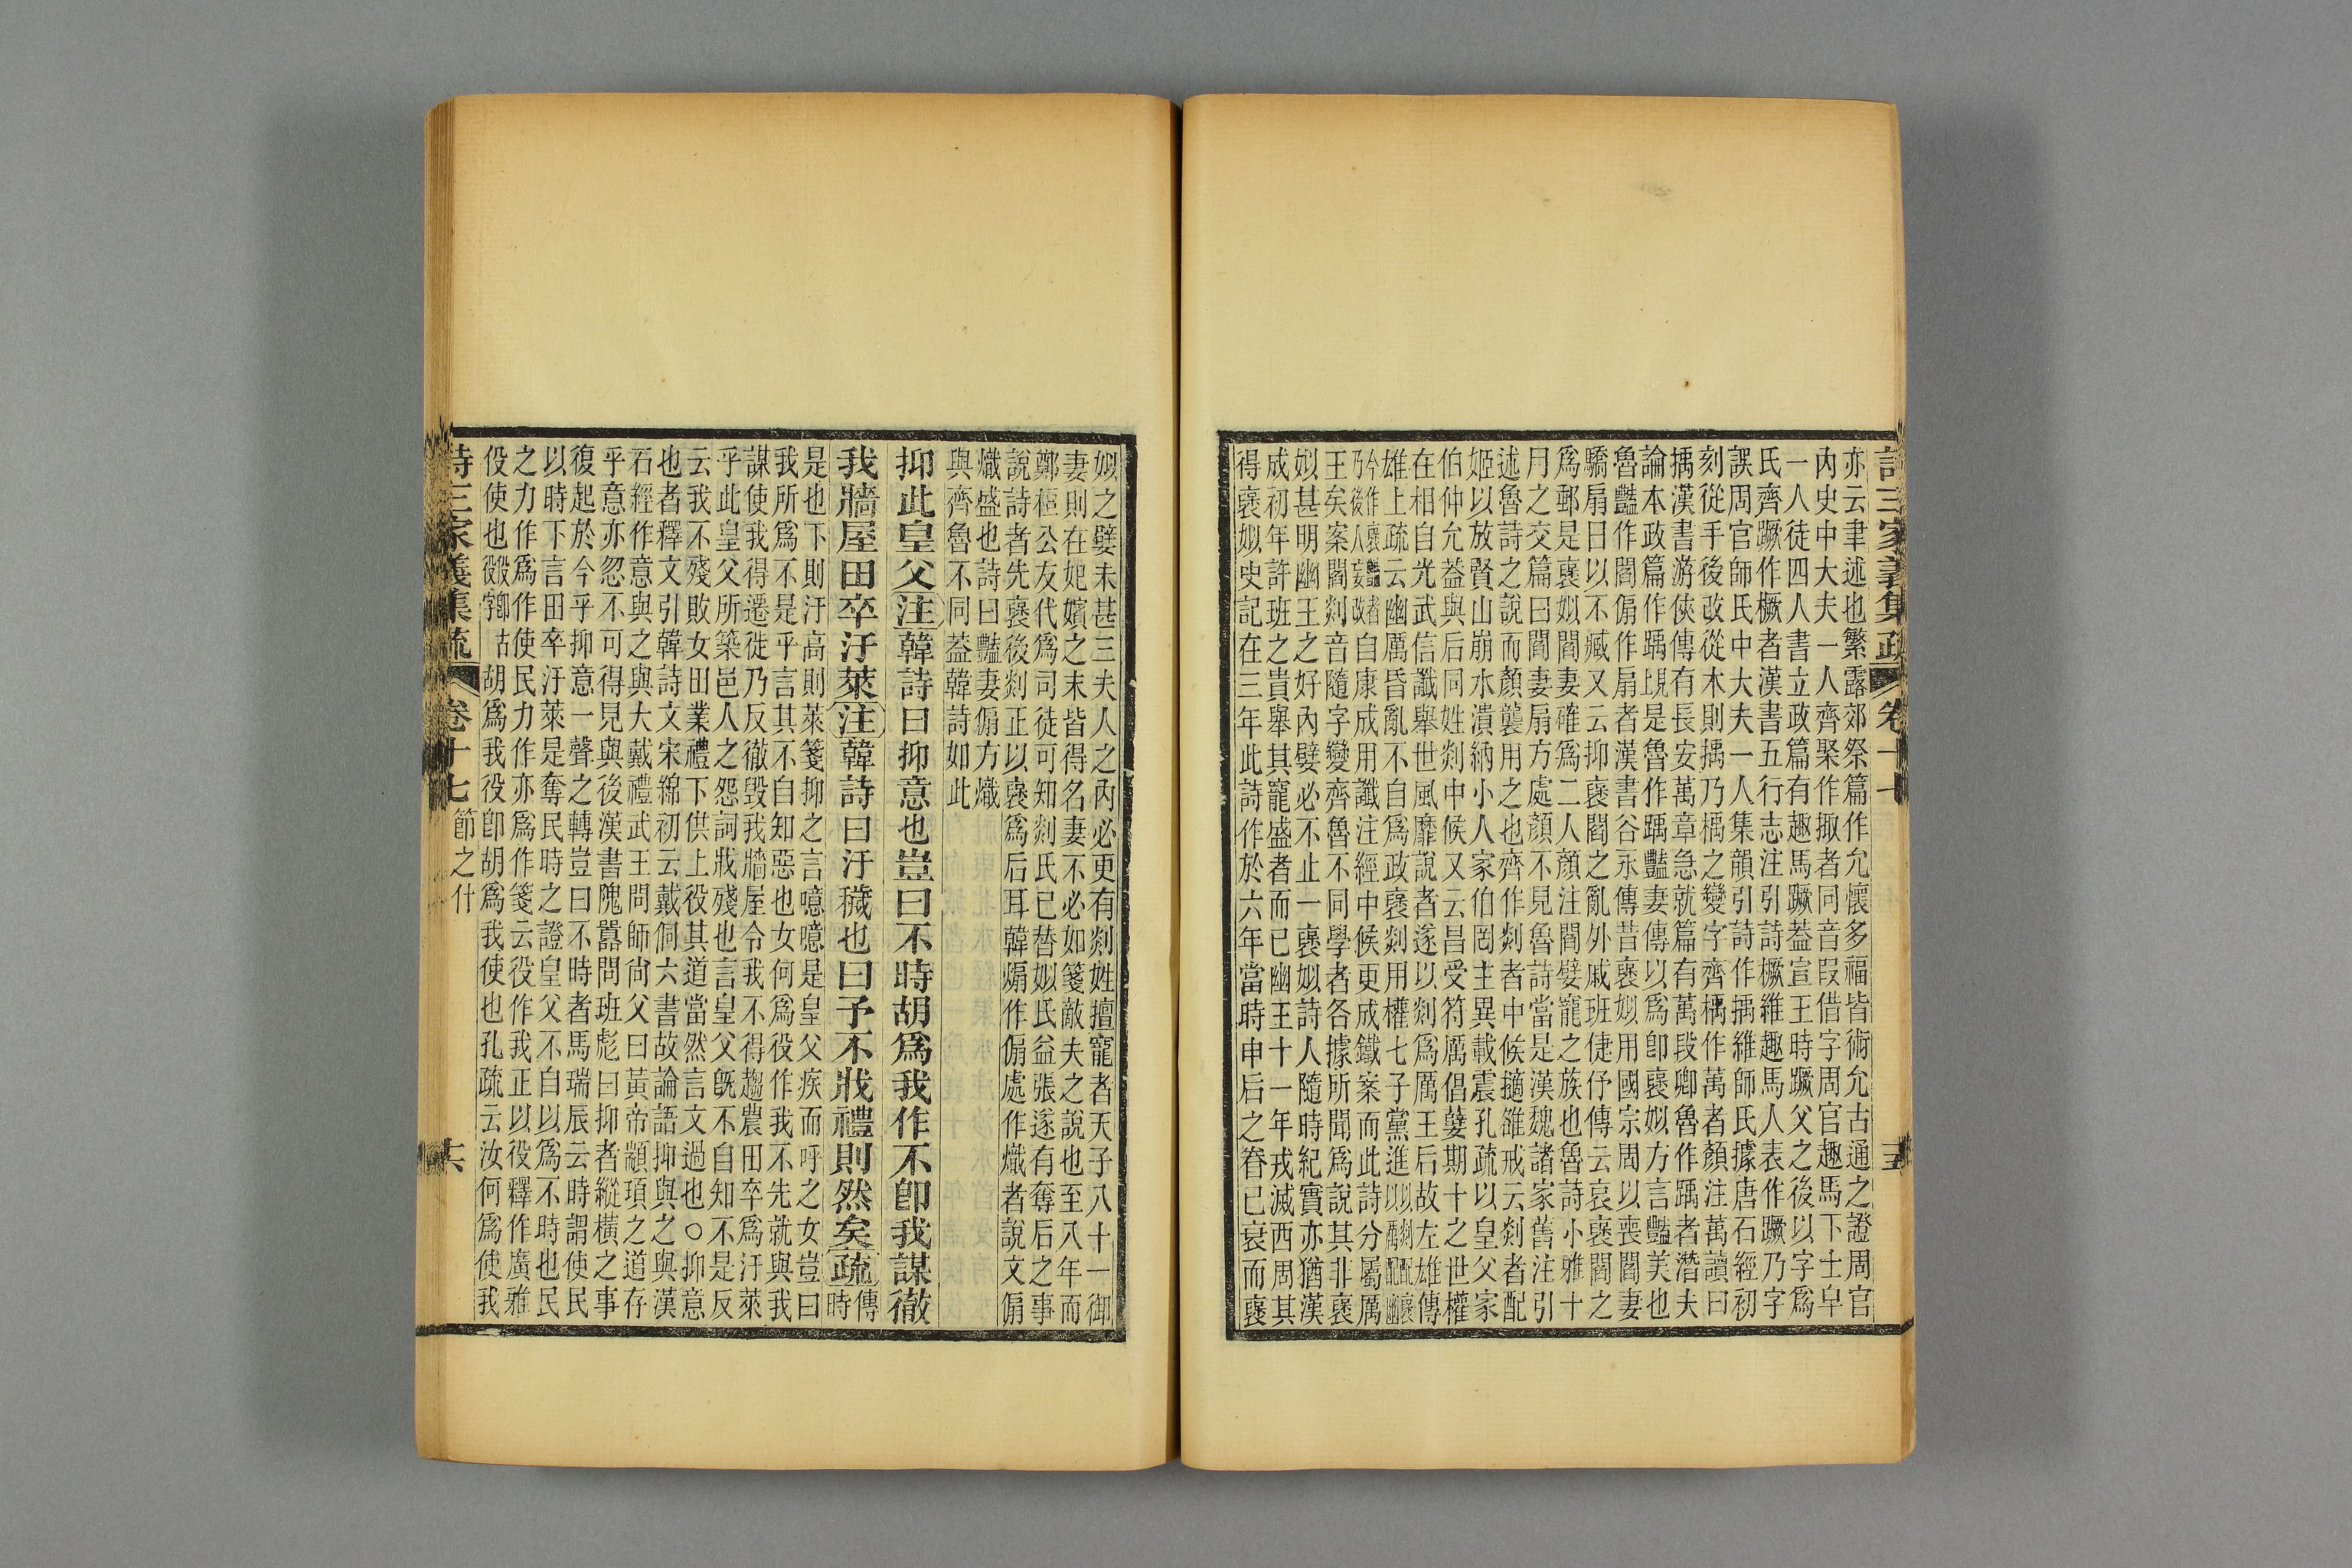 亦云聿述也繁露郊祭篇作允懷多福皆術允古通之證周官
內史中大夫一人齊聚作掫者同音叚借字周官趣馬下士皁
一人徒四人書立政篇有趣馬蹶蓋宣王時蹶父之後以字爲
氏齊蹶作橛者漢書五行志注引詩橛維趣馬人表作蹶乃字
誤周官師氏中大夫一人集韻引詩作㩻維師氏據唐石經初
刻從手後改從木則㩻乃楀之變字齊楀作萬者顏注萬讀曰
㩻漢書游俠傳有長安萬章急就篇有萬段卿魯作踽者潛夫
論本政篇作踽是魯作踽豔妻傳以爲卽襃姒方言豔美也
魯豔作閻傓作扇者漢書谷永傳昔襃姒用國宗周以喪閻妻
驕扇日以不臧又云抑襃閻之亂外戚班倢伃傳云哀襃閻之
爲郵是襃姒閻妻確爲二人顏注閻嬖寵之族也魯詩小雅十
月之交篇曰閻妻扇方處顏不見魯詩當是漢魏諸家舊注引
述魯詩之說而顏襲用之也齊作剡者中候擿雒戒云剡者配
姬以放賢山崩水潰納小人家伯罔主異載震孔疏以皇父家
伯仲允益與后同姓剡中候又云昌受符厲倡嬖期十之世權
在相自光武信讖舉世風靡說者遂以剡爲厲王后故左雄傳
雄上疏云幽厲昏亂不自爲政襃剡用權七子黨進以剡配襃以厲配幽
今作襃豔者乃後人妄改自康成用讖注經中候更成鐵案而此詩分屬厲
王矣案閻剡音隨字變齊魯不同學者各據所聞爲說其非襃
姒甚明幽王之好內嬖必不止一襃姒詩人隨時紀實亦猶漢
成初年許班之貴舉其寵盛者而已幽王十一年戎滅西周其
得襃姒史記在三年此詩作於六年當時申后之眷已衰而襃
詩三家義集疏 卷十七 十五
姒之嬖未甚三夫人之內必更有剡姓擅寵者天子八十一御
妻則在妃嬪之末皆得名妻不必如箋敵夫之說也至八年而
鄭桓公友代爲司徒可知剡氏已替姒氏益張遂有奪后之事
說詩者先襃後剡正以襃爲后耳韓煽作傓處作熾者說文傓
熾盛也詩曰豔妻傓方熾
與齊魯不同蓋韓詩如此
抑此皇父注韓詩曰抑意也豈曰不時胡爲我作不卽我謀徹
我牆屋田卒汙萊注韓詩曰汙穢也曰予不戕禮則然矣疏傳時
是也下則汙高則萊箋抑之言噫噫是皇父疾而呼之女豈曰
我所爲不是乎言其不自知惡也女何爲役作我不先就與我
謀使我得遷徙乃反徹毀我牆屋令我不得趨農田卒爲汙萊
乎此皇父所築邑人之怨詞戕殘也言皇父旣不自知不是反
云我不殘敗女田業禮下供上役其道當然言文過也○抑意
也者釋文引韓詩文宋綿初云戴侗六書故論語抑與之與漢
石經作意與之與大戴禮武王問師尙父曰黃帝顓頊之道存
乎意亦忽不可得見與後漢書隗囂問班彪曰抑者縱橫之事
復起於今乎抑意一聲之轉豈曰不時者馬瑞辰云時謂使民
以時下言田卒汙萊是奪民時之證皇父不自以爲不時也民
之力作爲作使民力作亦爲作箋云役作我正以役釋作廣雅
役使也役毀字卽古胡爲我役卽胡爲我使也孔疏云汝何爲使我
詩三家義集疏 卷十七 節之什 十六